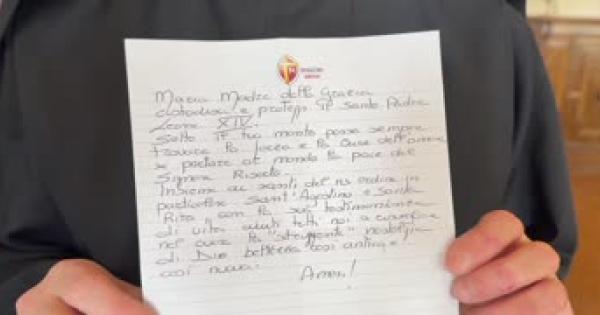 Maria Madre della Grazia
custodisci e proteggi il Santo Padre
Leone XIV.
Sotto il tuo manto possa sempre
trovare la luce e la del
e portare al mondo la pace del
Signore Risorto.
Insieme ai santi del ns ordine in
particolare Sant'Agostino e santa
Rita con la sua testimonianza
di vita aiuti tutti noi a
nel cuore la "struggente" nostalgia
di Dio bellezza "così antica e
così nuova.
Amen!